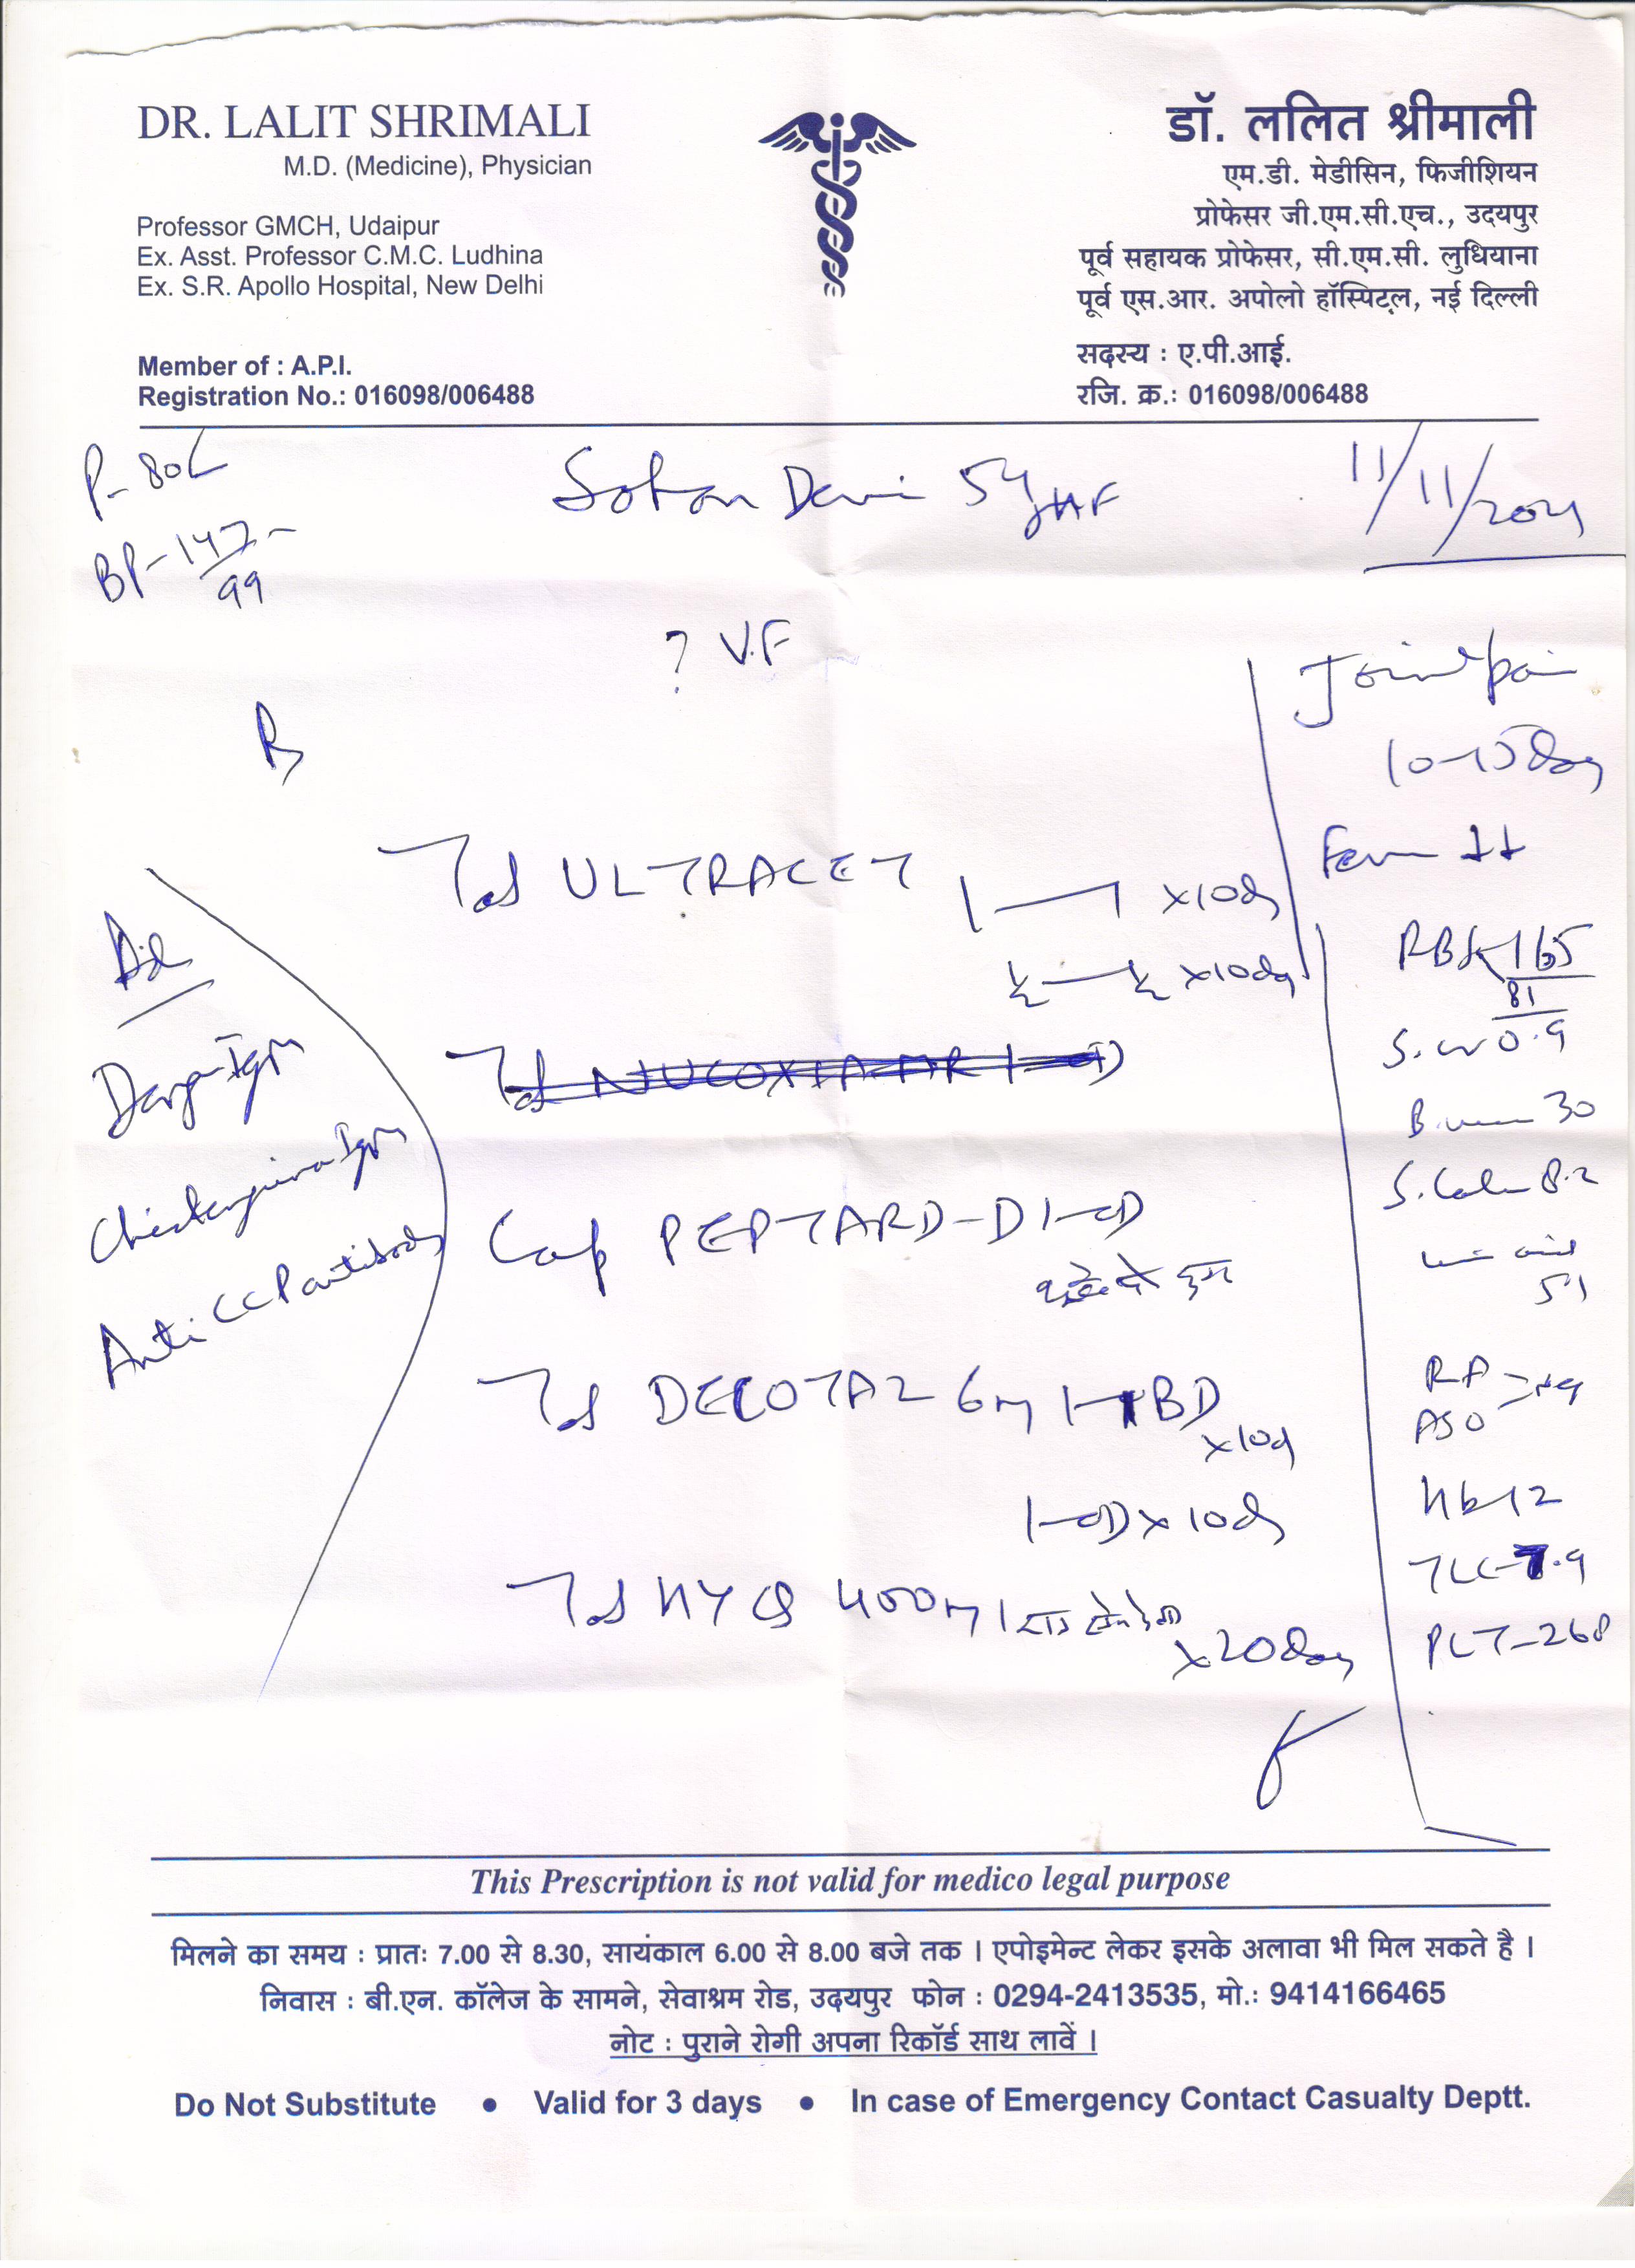 DR. LALIT SHRIMALI
M.D. (Medicine), Physician
Professor GMCH, Udaipur
Ex. Asst. Professor C.M.C. Ludhina
Ex. S.R. Apollo Hospital, New Delhi
Member of : A.P.I.
Registration No.: 016098/006488
डॉ. ललित श्रीमाली
एम.डी. मेडीसिन, फिजीशियन
प्रोफेसर जी.एम.सी.एच., उदयपुर
पूर्व सहायक प्रोफेसर, सी.एम.सी. लुधियाना
पूर्व एस.आर. अपोलो हॉस्पिटल, नई दिल्ली
सदस्य : ए.पी.आई.
रजि. क्र.: 016098/006488
P-80
Sohan Devi 54 F
11/11/2021
BP-147
99
? V.F
Joint pain
10-15 day
Fever ++
Tab ULTRACET
1—1 x10d
½—½ x10d
Ad
Dengue IgM
Chickengunia IgM
Anti CCP antibody
Cap PEPTARD-D 1-OD
Tab DEFOTAZ 6m 1-BD
x10d
1-OD x 10d
Tab HYQ 400m 1
x20day
RBS-165
81
S.cr 0.9
B.urea 30
S.Calcium 8.2
uric acid
5.1
RA
ASO
Hb-12
TLC-7.9
PLT-268
This Prescription is not valid for medico legal purpose
मिलने का समय : प्रातः 7.00 से 8.30, सायंकाल 6.00 से 8.00 बजे तक । एपोइमेन्ट लेकर इसके अलावा भी मिल सकते है ।
निवास : बी.एन. कॉलेज के सामने, सेवाश्रम रोड, उदयपुर फोन : 0294-2413535, मो.: 9414166465
नोट : पुराने रोगी अपना रिकॉर्ड साथ लावें ।
Do Not Substitute • Valid for 3 days • In case of Emergency Contact Casualty Deptt.